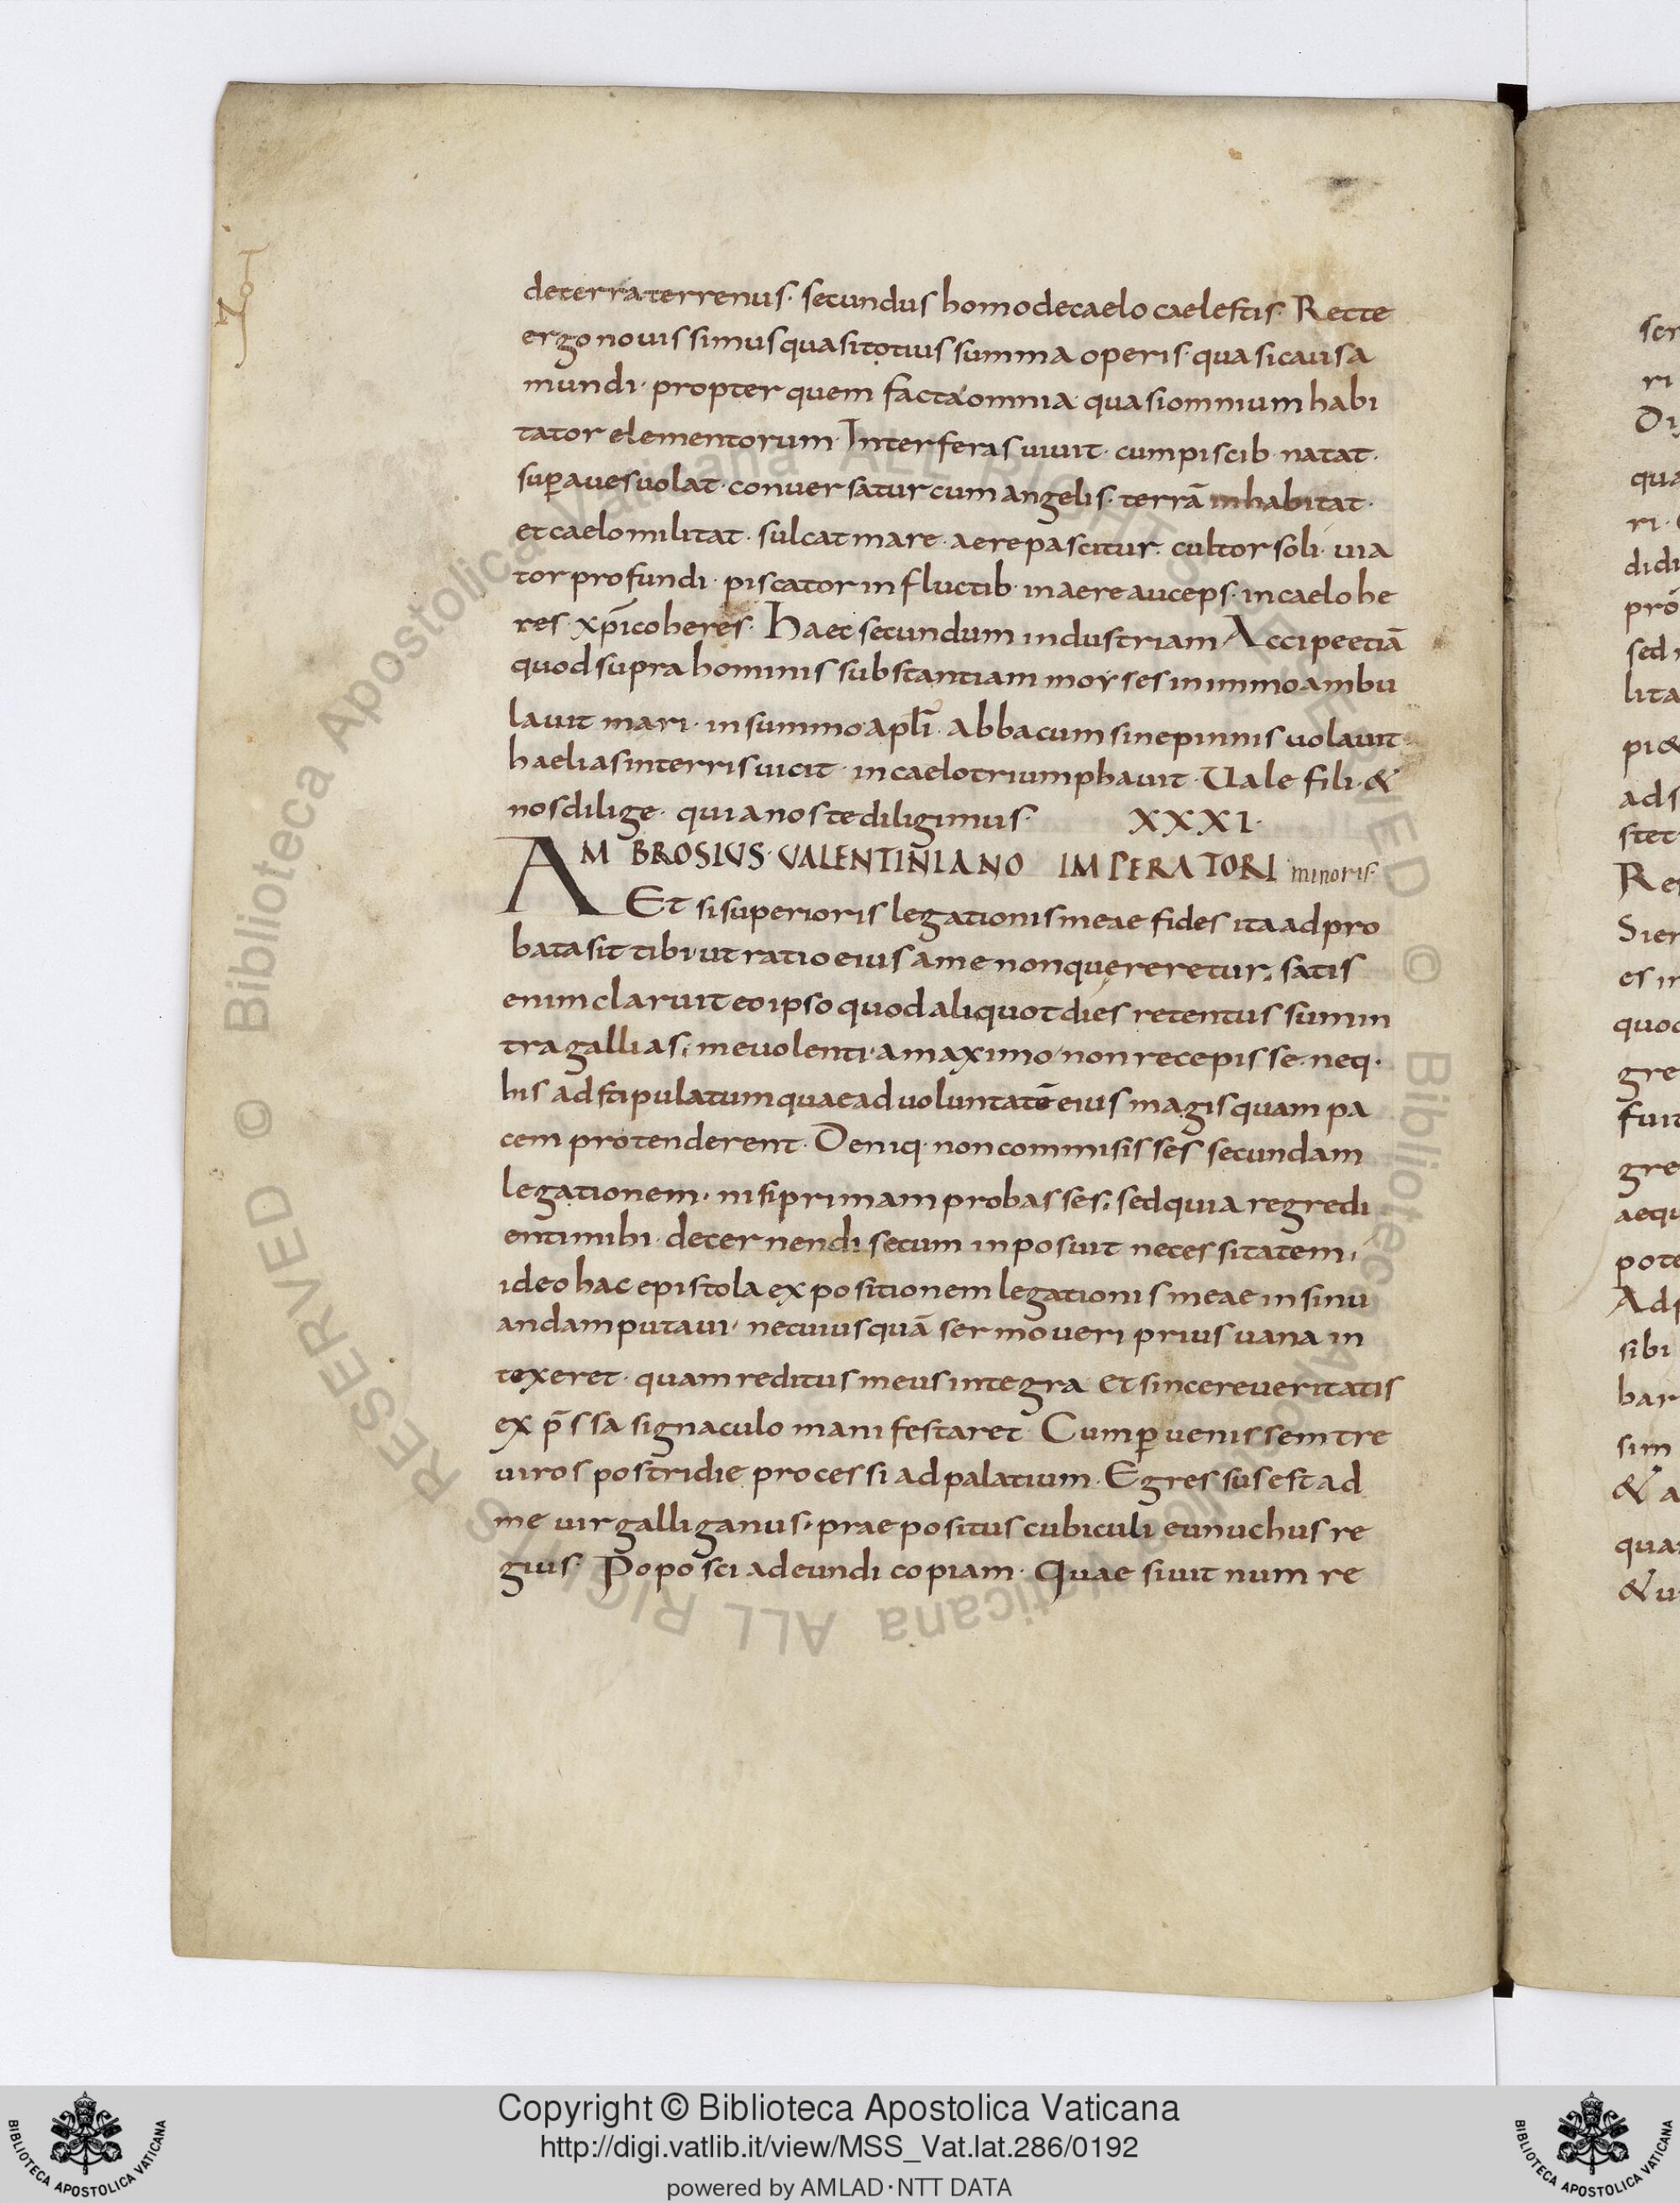 de terra terrenus· secundus homo de caelo caelestis· Recte
ergo nouissimus quasi totius summa operis· quasi causa
mundi· propter quem facta omnia quasi omnium habi
tator elementorum· Inter feras uiuit· cum piscib· natat·
sup̄ aues uolat· conuersatur cum angelis· terrā inhabitat·
et caelo militat· sulcat mare· aere pascitur· cultor soli· uia
tor profundi· piscator in fluctib· in aere auceps· in caelo he
res· xp̄i coheres· Haec secundum industriam Accipe etiā
quod supra hominis substantiam moyses in immo ambu
lauit mari· in summo apl̄i· Abbacum sine pinnis uolauit·
haelias in terris uicit· in caelo triumphauit· Uale fili· &
nos dilige· quia nos te diligimus· XXXI·
AMBROSIUS· UALENTINIANO IMPERATORI minoris·
Et si superioris legationis meae fides ita adpro
bata sit tibi· ut ratio eius a me non quereretur; satis
enim claruit eo ipso quod aliquot dies retentus sum in
tra gallias; me uolenti· a maximo non recepisse· neq·
his adstipulatum quae ad uoluntatē eius magis quam pa
cem protenderent· Deniq· non commisisses secundam
legationem· nisi primam probasses; sed quia regredi
enti mihi· decernendi secum inposuit necessitatem;
ideo hac epistola expositionem legationis meae insinu
andam putaui· ne cuiusquā sermo ueri prius uana in
texeret· quam reditus meus integra et sincere ueritatis
ex p̄ssa signaculo manifestaret· Cum p̄uenissem tre
uiros postridie processi ad palatium· Egressus est ad
me uir galliganus· praepositus cubiculi eunuchus re
gius· Poposci adeundi copiam· Quaesiuit num re
ri
qua
ri·
didi
sed
lita
pi&
ad s
stet
quod
gre
fuit
gre
aequ
pote
sibi
bar
sim
& a
& u
© Biblioteca Apostolica Vaticana ALL RIGHTS RESERVED © Biblioteca Apostolica Vaticana ALL RIGHTS RESERVED
Copyright © Biblioteca Apostolica Vaticana
http://digi.vatlib.it/view/MSS_Vat.lat.286/0192
powered by AMLAD·NTT DATA
BIBLIOTECA APOSTOLICA VATICANA
BIBLIOTECA APOSTOLICA VATICANA